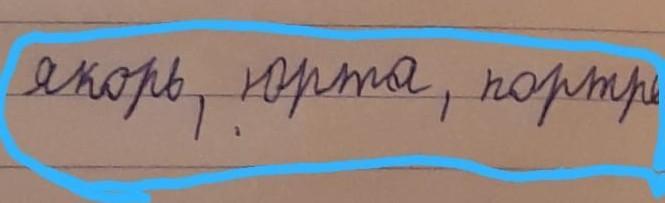 якорь, юрта, портре